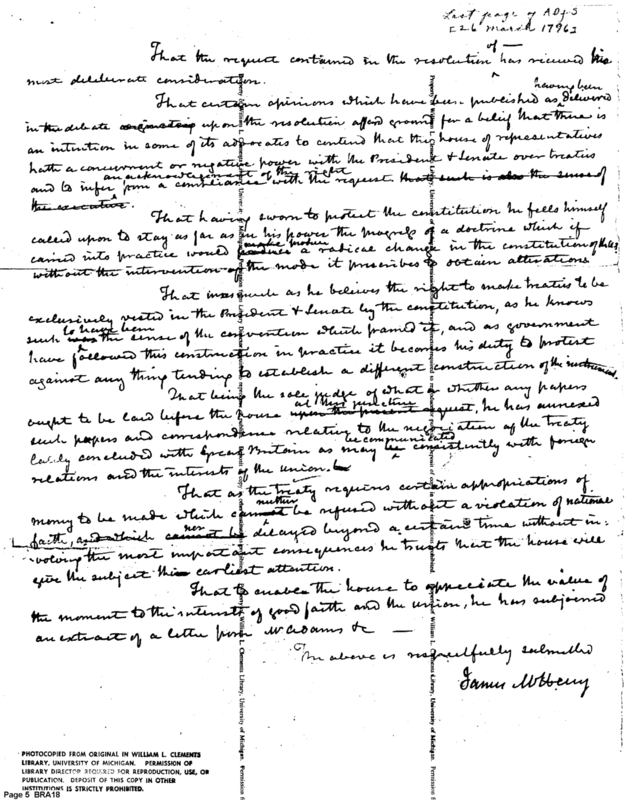 Last page of ADfS
[26 March 1796]
of —
That the request contained in the resolution ^ has received his
most deliberate consideration.
having been
That certain opinions which have been published as ^ delivered
in the debate upon the resolution afford ground for a belief that there is
an intention in some of its advocates to contend that the house of representatives
hath a concurrent or negative power with the President & Senate over treaties
an acknowledgement of the right
and to infer ^ from a compliance with the request that such is also the sense of
the executive.
That having sworn to protect the constitution he fells himself
called upon to stay as far as in his power the progress of a doctrine which if
carried into practice would produce a radical change in the constitution of the US
without the intervention of the mode it prescribes to obtain alterations
That inasmuch as he believes the right to make treaties to be
exclusively vested in the President & Senate by the constitution, as he knows
to have been
such was the sense of the convention which framed it, and as government
have followed this construction in practice it becomes his duty to protest
against any thing tending to establish a different construction of the instrument.
That being the sole judge of what or whether any papers
at this juncture
ought to be laid before the house upon the present request, he has annexed
such papers and correspondence relating to the negociation of the treaty
be communicated
lately concluded with Great Britain as may ^ consistently with foreign
relations and the interests of the union.
That as the treaty requires certain appropriations of
neither
money to be made which cannot be refused without a violation of national
nor
faith, and which cannot be delayed beyond a certain time without in:
volving the most important consequences he trusts that the house will
give the subject the earliest attention.
That to enable the house to appreciate the value of
the moment to the interests of good faith and the union, he has subjoined
an extract of a letter from Mr Adams &c —
The above is respectfully submitted
James McHenry
Property William L. Clements Library, University of Michigan. Permission
PHOTOCOPIED FROM ORIGINAL IN WILLIAM L. CLEMENTS
LIBRARY, UNIVERSITY OF MICHIGAN. PERMISSION OF
LIBRARY DIRECTOR REQUIRED FOR REPRODUCTION, USE, OR
PUBLICATION. DEPOSIT OF THIS COPY IN OTHER
INSTITUTIONS IS STRICTLY PROHIBITED.
Page 5 BRA18